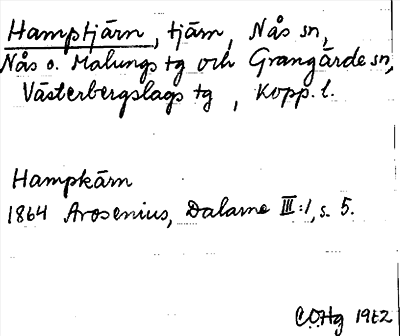 Hamptjärn, tjärn, Nås sn,
Nås o. Malungs tg och Grangärde sn,
Västerbergslags tg, Kopp. l.
Hampkärn
1864 Arosenius, Dalarne III:1, s. 5.